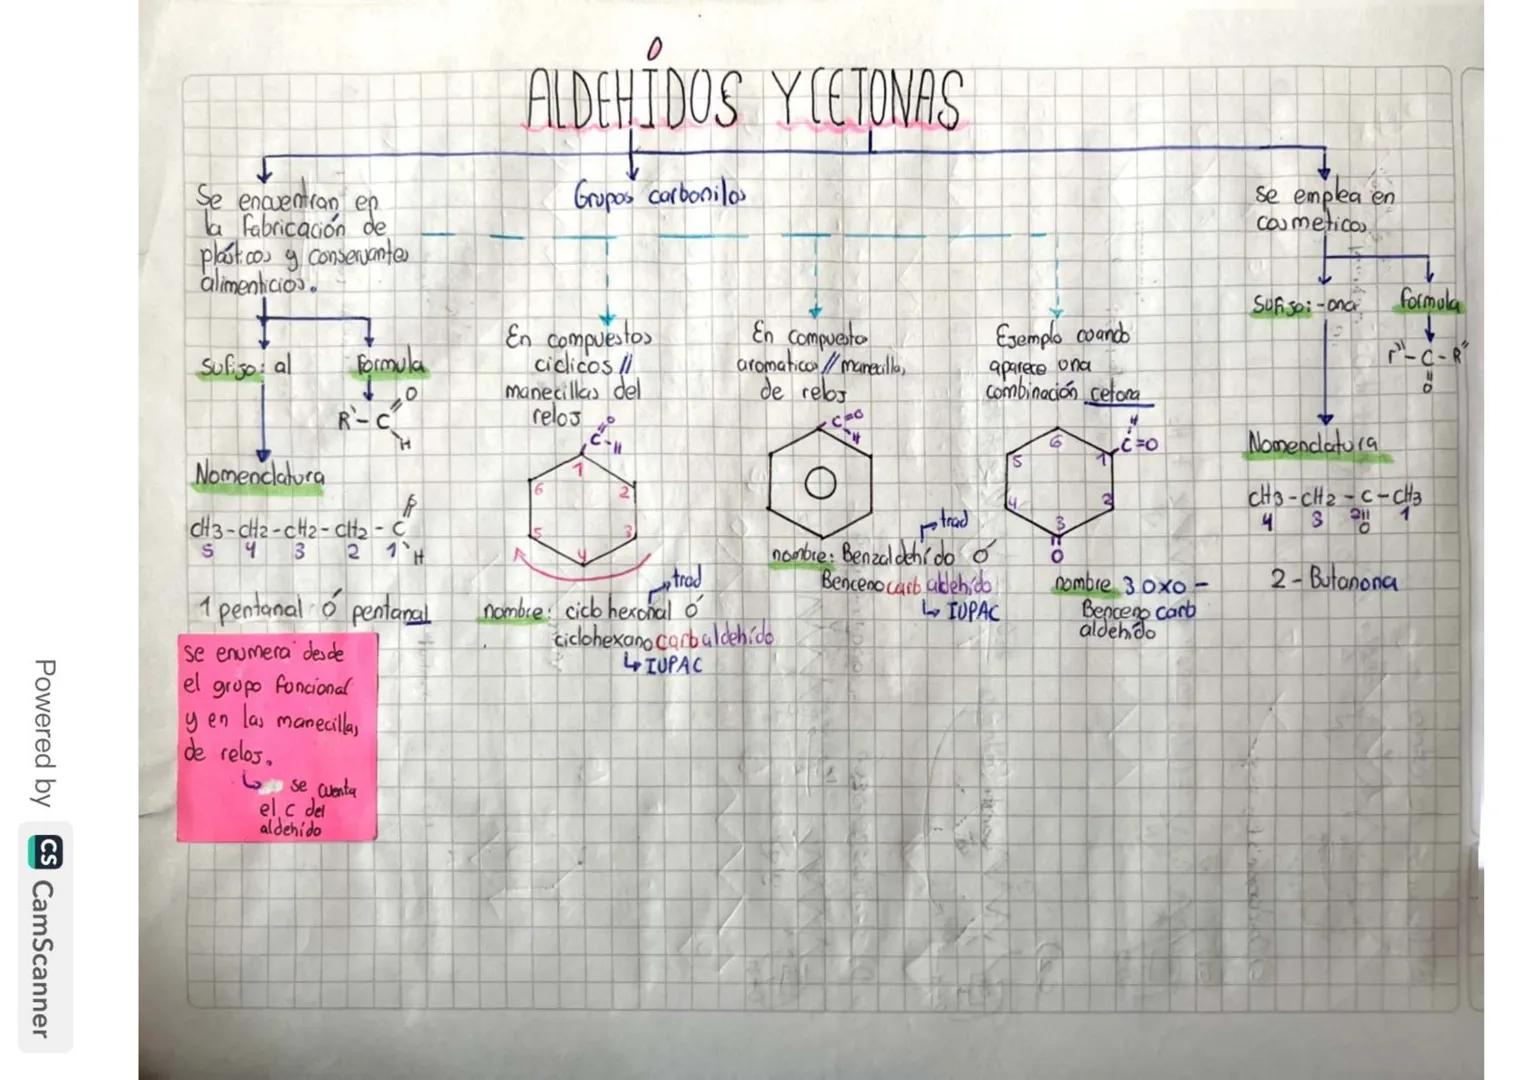 ALDEHÍDOS Y CETONAS
Se encuentran en
la fabricación de
plásticos y conservantes
alimenticios.
sufijo: al
formula
R'- C
O
H
Nomenclatura
CH3-CH2-CH2-CH2-C
H
5 4 3 2 1
1 pentanal ó pentanal
se enumera desde
el grupo funcional
y en las manecillas
de reloj.
↳ se cuenta
el c del
aldehído
Grupos carbonilos
En compuestos
ciclicos //
manecillas del
reloj
C=O
-H
1
6 2
5 3
4
trad
nombre: ciclohexonal ó
ciclohexano carbaldehído
↳ IUPAC
En compuesto
aromatico // manecillas
de reloj
C=O
H
trad
nombre: Benzaldehído ó
Benceno carb aldehido
↳ IUPAC
Ejemplo cuando
aparece una
combinación cetona
H
C=O
6
5 1
4 2
3
O
nombre 3 oxo -
Benceno carb
aldehído
se emplea en
cosmeticos
Sufijo: -ona
formula
r"- C - R"
O
Nomenclatura
CH3-CH2-C-CH3
4 3 2 1
O
2- Butanona
Powered by CS CamScanner